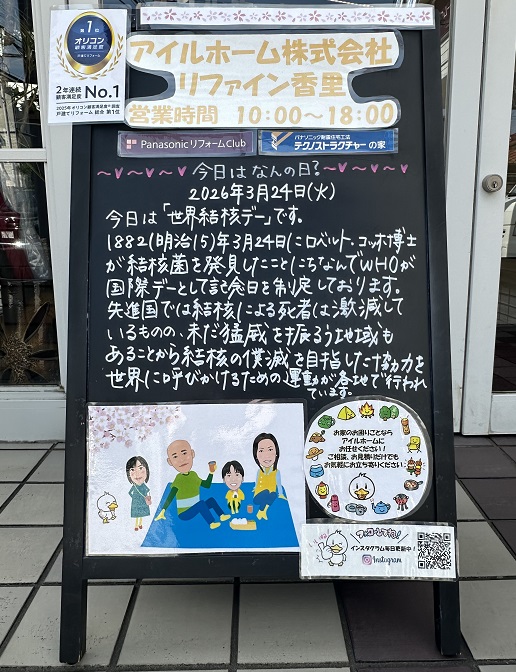 第1位
オリコン
顧客満足度
戸建てリフォーム
2年連続
顧客満足度 No.1
2025年オリコン顧客満足度®調査
戸建てリフォーム 総合 第1位
アイルホーム株式会社
リファイン香里
営業時間 10:00～18:00
Panasonic リフォーム Club
パナソニック耐震住宅工法
テクノストラクチャーの家
～♥～♥～♥～今日はなんの日?～♥～♥～♥～
2026年3月24日(火)
今日は「世界結核デー」です。
1882(明治15)年3月24日にロベルト・コッホ博士
が結核菌を発見したことにちなんでWHOが
国際デーとして記念日を制定しております。
先進国では結核による死者は激減して
いるものの、未だ猛威を振るう地域も
あることから結核の僕滅を目指した協力を
世界に呼びかけるための運動が各地で行われ
ています。
お家のお困りごとなら
アイルホームに
お任せください!
ご相談、お見積りだけでも
お気軽にお立ち寄りください
フォローしてね!
インスタグラム毎日更新中!
Instagram